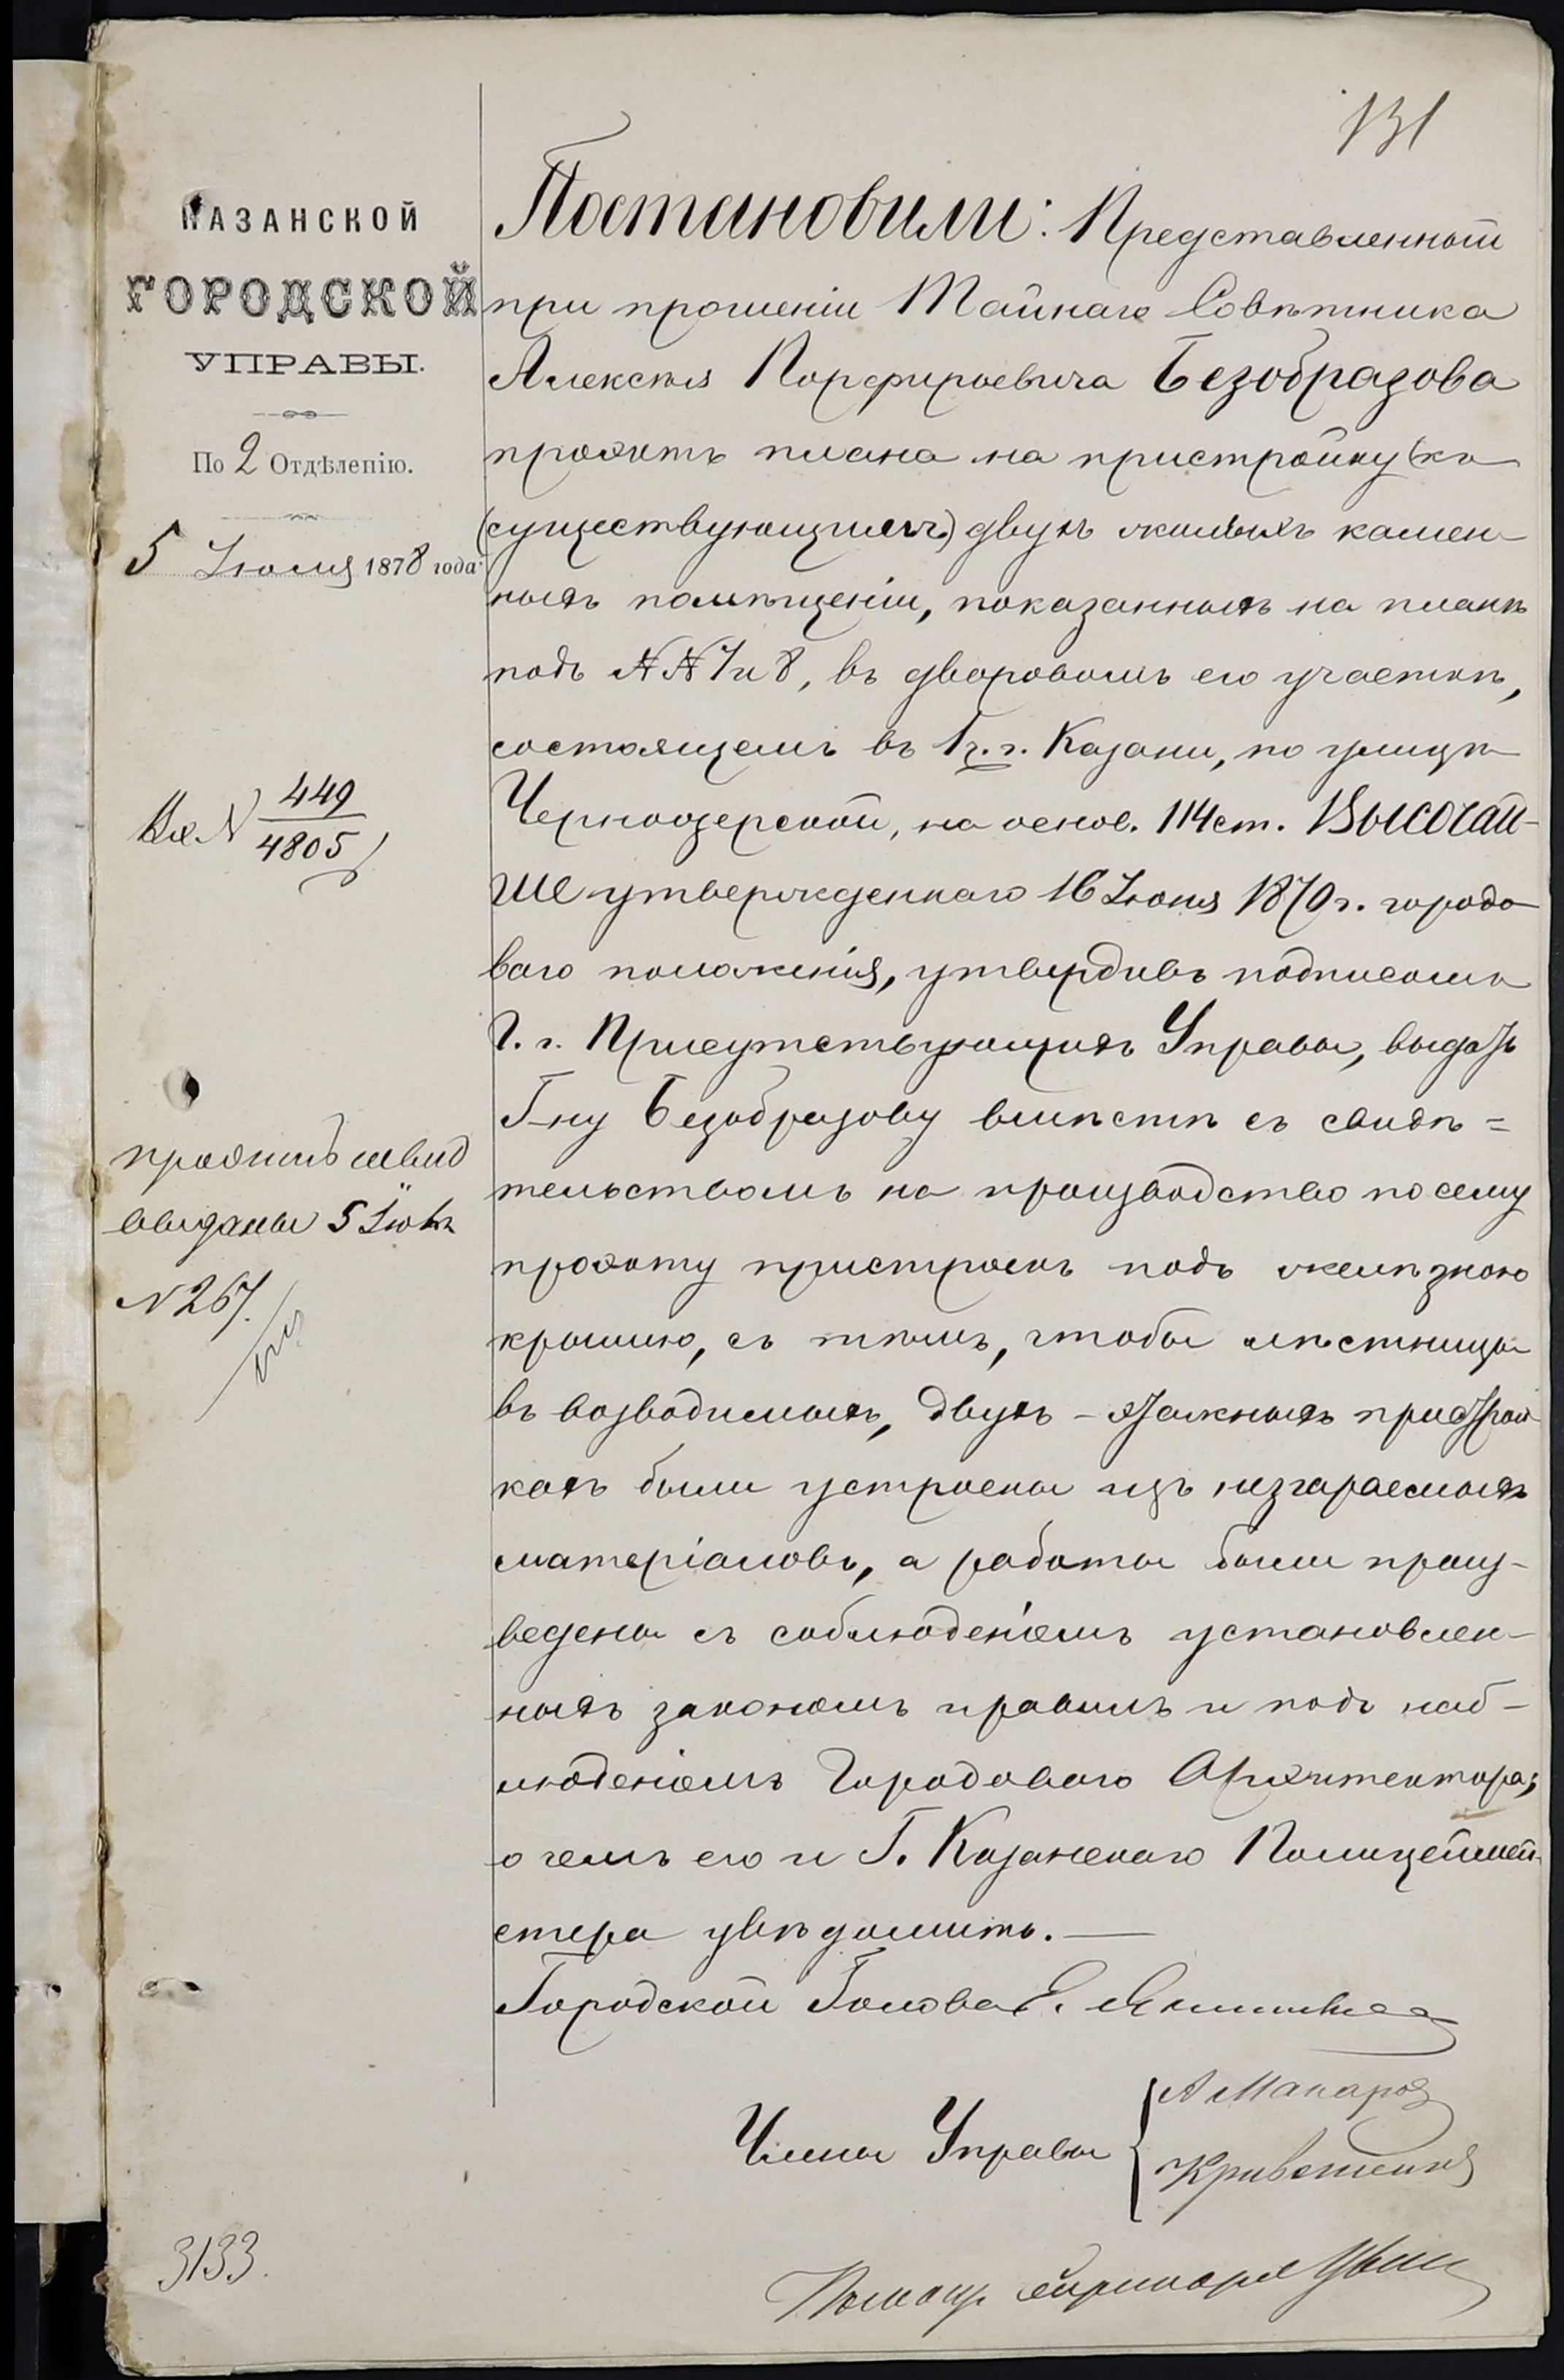 131
КАЗАНСКОЙ
ГОРОДСКОЙ
УПРАВЫ.
По 2 Отдѣленію.
5 Іюля 1878 года
Вх. № 449
4805
проэктъ и свид
выданы 5 Іюля
№ 267.
3133.
Постановили: Представленной
при прошеніи Тайнаго Совѣтника
Алексѣя Порфирьевича Безобразова
проэктъ плана на пристройку (къ
существующимъ) двухъ жилыхъ камен-
ныхъ помѣщеній, показанныхъ на планѣ
подъ №№ 7 и 8, въ дворовомъ его участкѣ,
состоящемъ въ 1 ч. г. Казани, по улицѣ
Черноозерской, на основ. 114 ст. ВЫСОЧАЙ-
ШЕ утвержденнаго 16 Іюня 1870 г. городо
ваго положенія, утвердивъ подписомъ
Г. г. Присутствующихъ Управы, выдать
Г-ну Безобразову вмѣстѣ съ свидѣ=
тельствомъ на производство по сему
проэкту пристроекъ подъ желѣзною
крышею, съ тѣмъ, чтобы лѣстницы
въ возводимыхъ, двухъ-этажныхъ пристрой
кахъ были устроены изъ несгораемыхъ
матеріаловъ, а работы были произ-
ведены съ соблюденіемъ установлен-
ныхъ закономъ правилъ и подъ наб-
люденіемъ Городоваго Архитектора;
о чемъ его и Г. Казанскаго Полицеймей-
стера увѣдомить.—
Городской Голова Е.
Члены Управы
А Макаровъ
Помощ. Секретаря